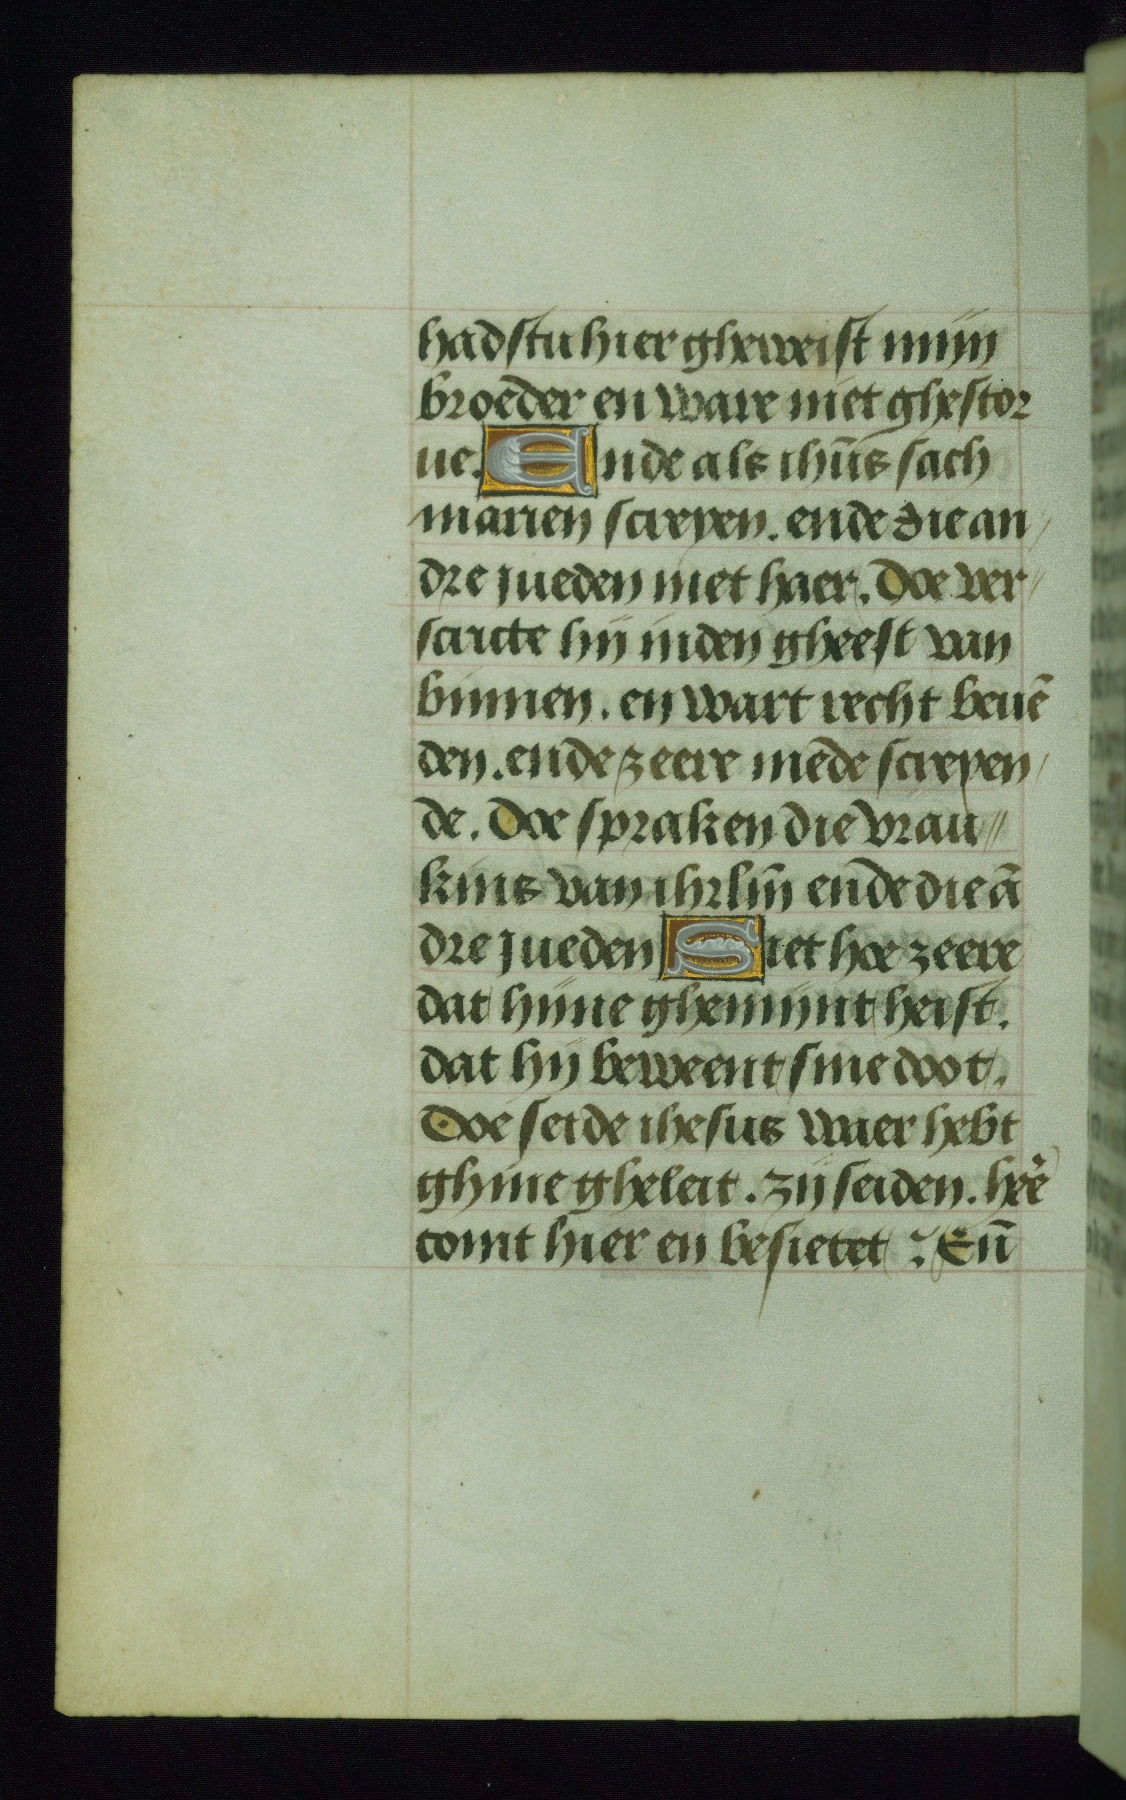 hadstu hier gheweist mijn
broeder en ware niet ghestor
ue. Ende als ihūs sach
marien screyen. ende die an
dre jueden met haer. Doe ver
scricte hij inden gheest van
binnen. en wart recht beuē
den. ende zeere mede screyen
de. Doe spraken die vrau
kins van ihrlm̄ ende die ā
dre jueden Siet hoe zeere
dat hijne ghemijnt heist.
dat hij beweent sine doot.
Doe seide ihesus waer hebt
ghine gheleit. zij seiden. heē
comt hier en besietet. Eñ